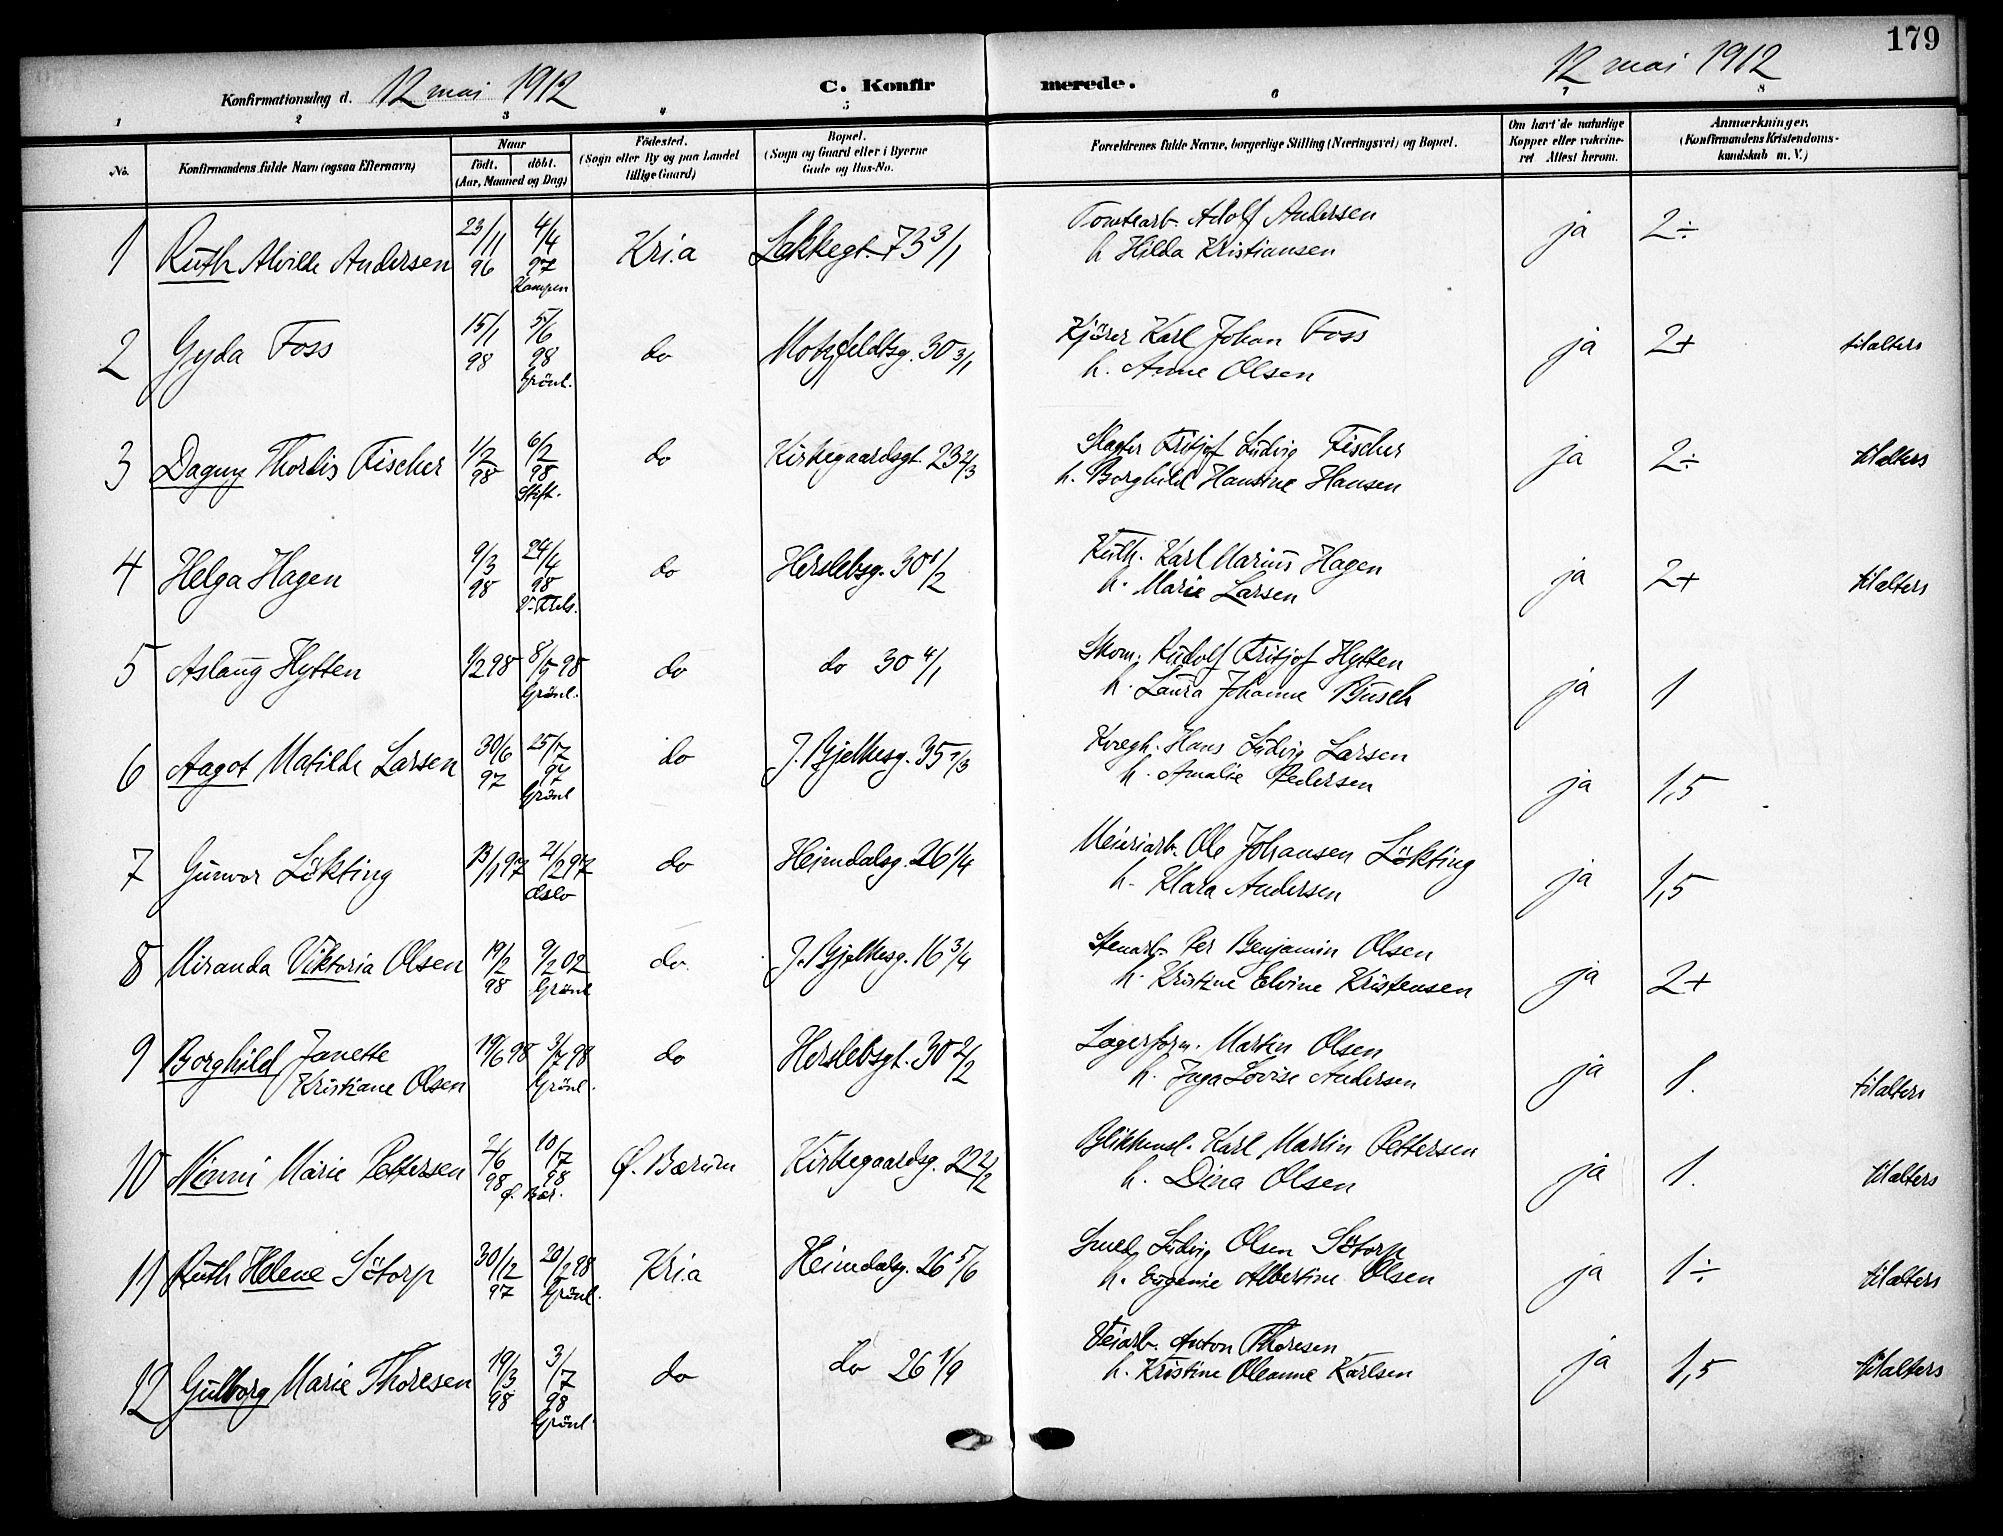 179
Konfirmationsdag d. 12 mai 1912 C. Konfirmerede. 12 mai 1912
1 2 3 4 5 6 7 8
No. Konfirmandens fulde Navn (ogsaa Efternavn) Naar født. døbt. (Aar, Maaned og Dag) Fødested. (Sogn eller By og paa Landet tillige Gaard) Bopæl. (Sogn og Gaard eller i Byerne Gade og Hus-No. Forældrenes fulde Navne, borgerlige Stilling (Næringsvei) og Bopæl. Om havt de naturlige Kopper eller vakcineret Attest herom. Anmærkninger. (Konfirmandens Kristendomskundskab m. V.)
1 Ruth Alvilde Andersen 23/11 96 4/4 97 Kampen Kria Lakkegt. 73 3/1 Tomtearb. Adolf Andersen
h Hilda Kristiansen ja 2÷
2 Gyda Foss 15/1 98 5/6 98 Grönl. do Motzfeldtsg. 30 3/1 Kjörer Karl Johan Foss
h. Anne Olsen ja 2+ til alters
3 Dagny Thordis Fischer 1/2 98 6/2 98 Stift. do Kirkegaardsgt. 23 2/3 Slagter Fritjof Ludvig Fischer
h. Borghild Hansine Hansen ja 2÷ til alters
4 Helga Hagen 9/3 98 24/4 98 do Herslebsg. 30 1/2 Karl Marius Hagen
h. Marie Larsen ja 2+ til alters
5 Aslaug Hytten 1/2 98 8/5 98 Grönl. do do 30 4/1 Skom. Rudolf Fritjof Hytten
h. Laura Johanne Busch ja 1
6 Aagot Matilde Larsen 30/6 97 25/7 97 Grönl do J. Bjelkesg. 35 1/3 Kvægh. Hans Ludvig Larsen
h. Amalie Pedersen ja 1,5
7 Gunvor Lökting 13/1 97 2/2 97 Oslo do Heimdalsg. 26 1/4 Meieriarb. Ole Johansen Lökting
h. Klara Andersen ja 1,5
8 Miranda Viktoria Olsen 19/2 98 9/2 02 Grönl do. J. Bjelkesg. 16 3/4 Stenarb. Per Benjamin Olsen
h. Kristine Elvine Kristensen ja 2+
9 Borghild Janette
Kristiane Olsen 19/6 98 3/7 98 Grönl. do Herslebsgt. 30 2/2 Lagerform. Martin Olsen
h. Inga Lovise Andersen ja 1. til alters
10 Nenni Marie Pettersen 2/6 98 10/7 98 Ø. Bær. Ø. Bærum Kirkegaardsg. 22 2/2 Blikkensl. Karl Martin Pettersen
h. Dina Olsen ja 1. til alters
11 Ruth Helene Sötorp 30/12 97 20/2 98 Grönl. Kria Heimdalsg. 26 5/6 Smed Ludvig Olsen Sötorp
h. Eugenie Albertine Olsen ja 1÷ til alters
12 Gulborg Marie Thoresen 19/3 98 3/7 98 Grönl. do do 26 1/9 Veiarb. Anton Thoresen
h. Kristine Oleanne Karlsen ja 1,5 til alters